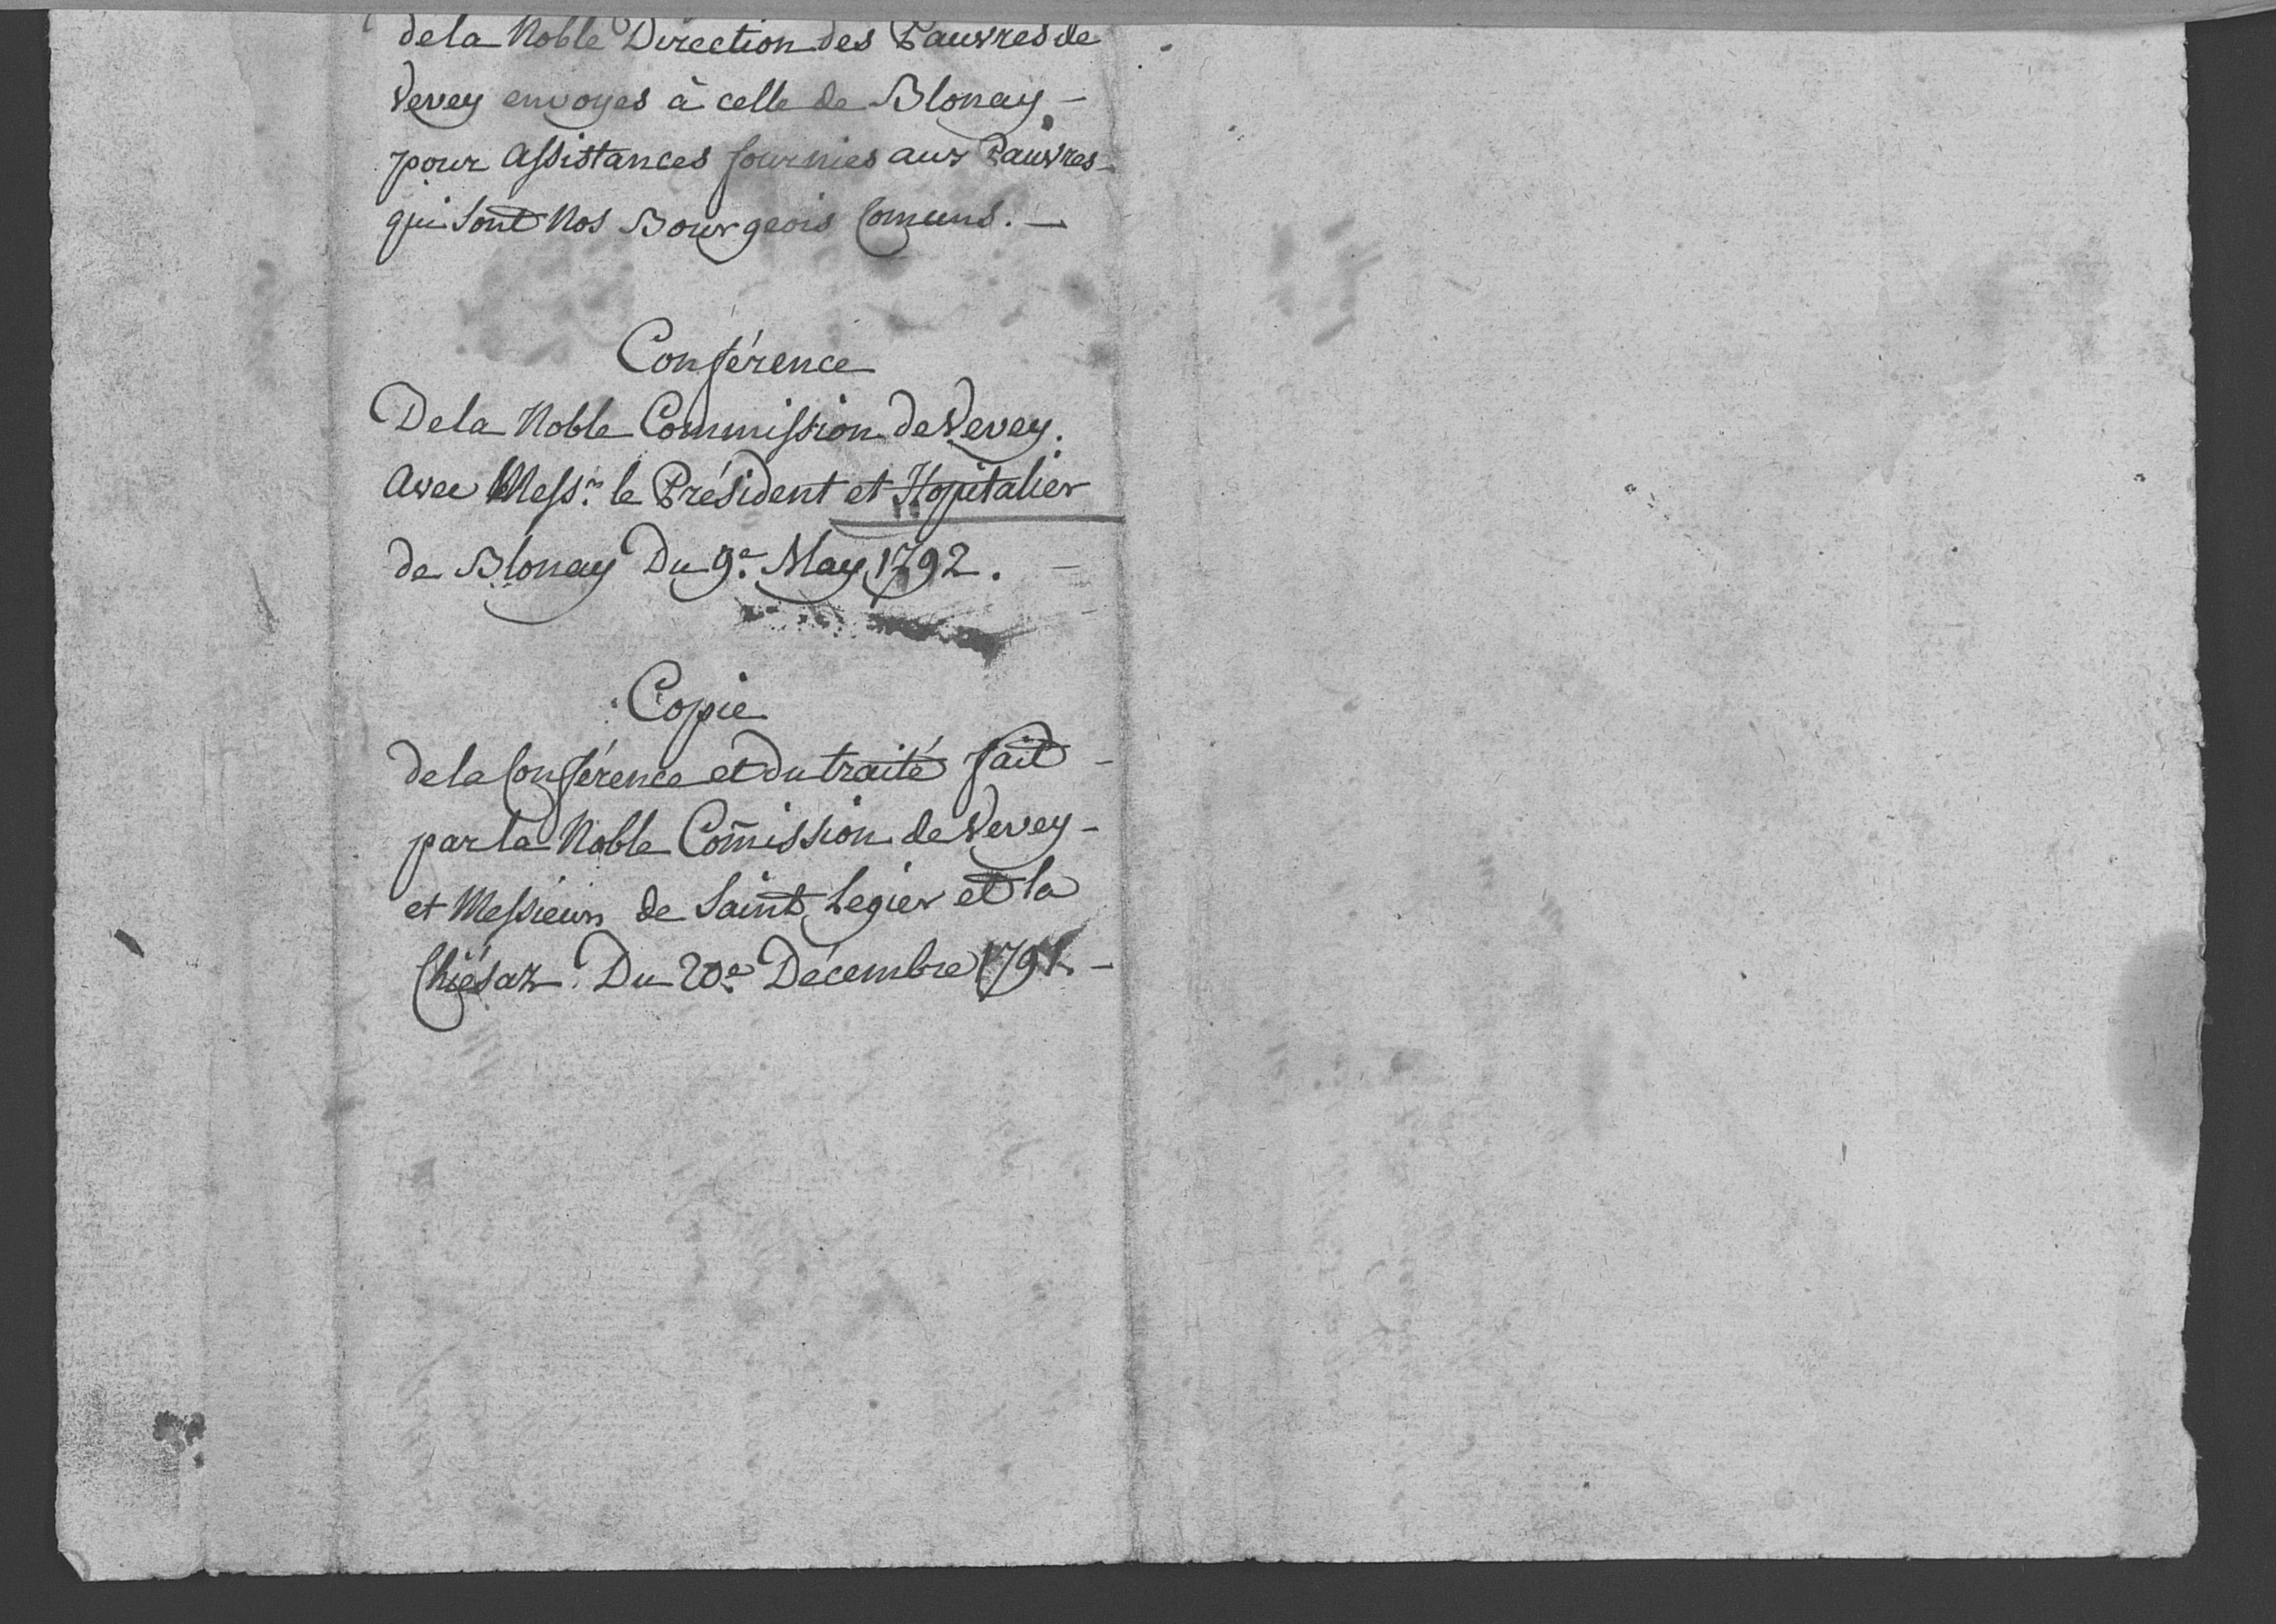 de la Noble Direction des Pauvres de
Vevey envoyés à celle de Blonay -
pour Assistances fournies aux Pauvres -
qui sont Nos Bourgeois Comuns. —
Conférence
De la Noble Commission de Vevey.
Avec Messrs. le Président et Hopitalier
de Blonay Du 9e. May 1792. -
Copie
de la Conférence et du traité fait -
par la Noble Com̄ission de Vevey -
et Messieurs de Saint Legier et la
Chiésaz. Du 20e. Décembre 1791. -